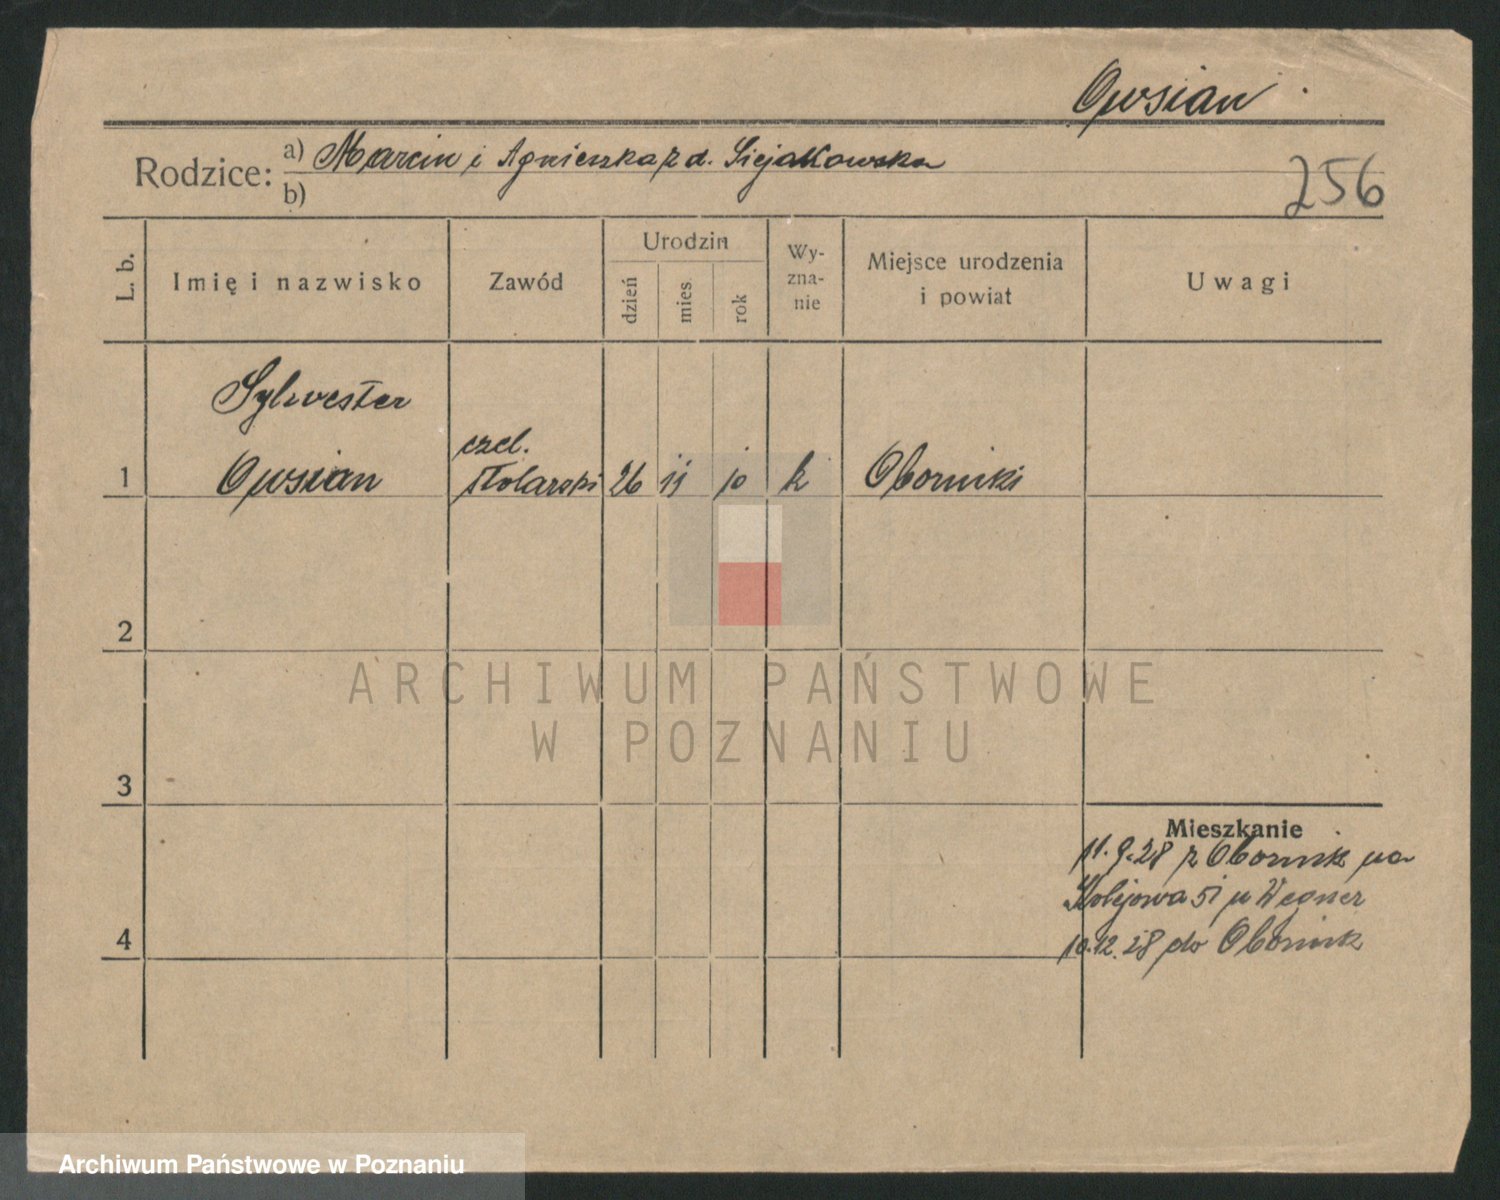 Owsian
Rodzice: a) Marcin i Agnieszka z d. Siejakowska
b)
256
L. b. Imię i nazwisko Zawód Urodzin dzień mies rok Wyznanie Miejsce urodzenia i powiat Uwagi
Sylwester
czel.
1 Owsian stolarski 26 11 10 k Oborniki
2
ARCHIWUM PAŃSTWOWE
W POZNANIU
3
Mieszkanie
11.9.28 z Obornik na
Kolejowa 51 u Wegner
4
10.12.28 do Obornik
Archiwum Państwowe w Poznaniu